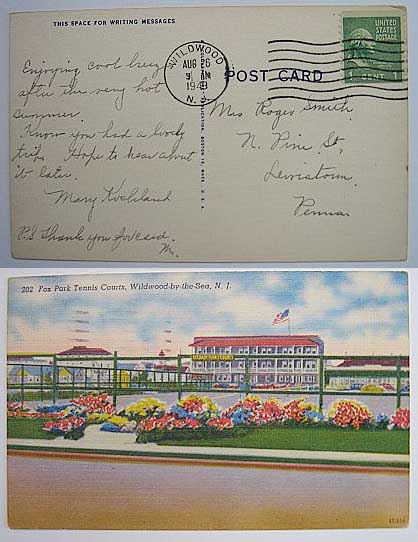 THIS SPACE FOR WRITING MESSAGES
Enjoying cool breeze
after the very hot
summer.
Know you had a lovely
trip. Hope to hear about
it later.
Mary Kochland
P.S Thank you for card.
M.
WILDWOOD
AUG 26
9 AM
N. J.
UNITED STATES POSTAGE
1 CENT 1
POST CARD
Mrs Roger Smith
N. Pine St,
Lewistown,
Penna
202 Fox Park Tennis Courts, Wildwood-by-the-Sea, N. J.